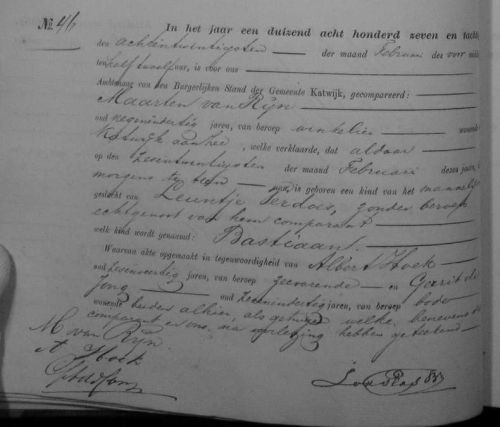 No. 46
In het jaar een duizend acht honderd zeven en tachtig
den achtentwintigsten der maand Februari des voor
ten half twaalf ure, is voor ons
Ambtenaar van den Burgerlijken Stand der Gemeente Katwijk, gecompareerd:
Maarten van Rijn
oud negenendertig jaren, van beroep winkelier wonende
Katwijk aan Zee, welke verklaarde, dat aldaar
op den zesentwintigsten der maand Februari dezes jaars,
morgens te tien ure, is geboren een kind van het mannelijk
geslacht van Leuntje Verdoes, zonder beroep
echtgenoot van hem comparant
welk kind wordt genaamd: Bastiaan.
Waarvan akte opgemaakt in tegenwoordigheid van Albert Hoek
oud jaren, van beroep en Gerrit de
Jong oud jaren, van beroep bode
wonende beiden alhier, als getuigen welke, benevens de
comparant en ons, na voorlezing hebben geteekend
M van Rijn
A Hoek